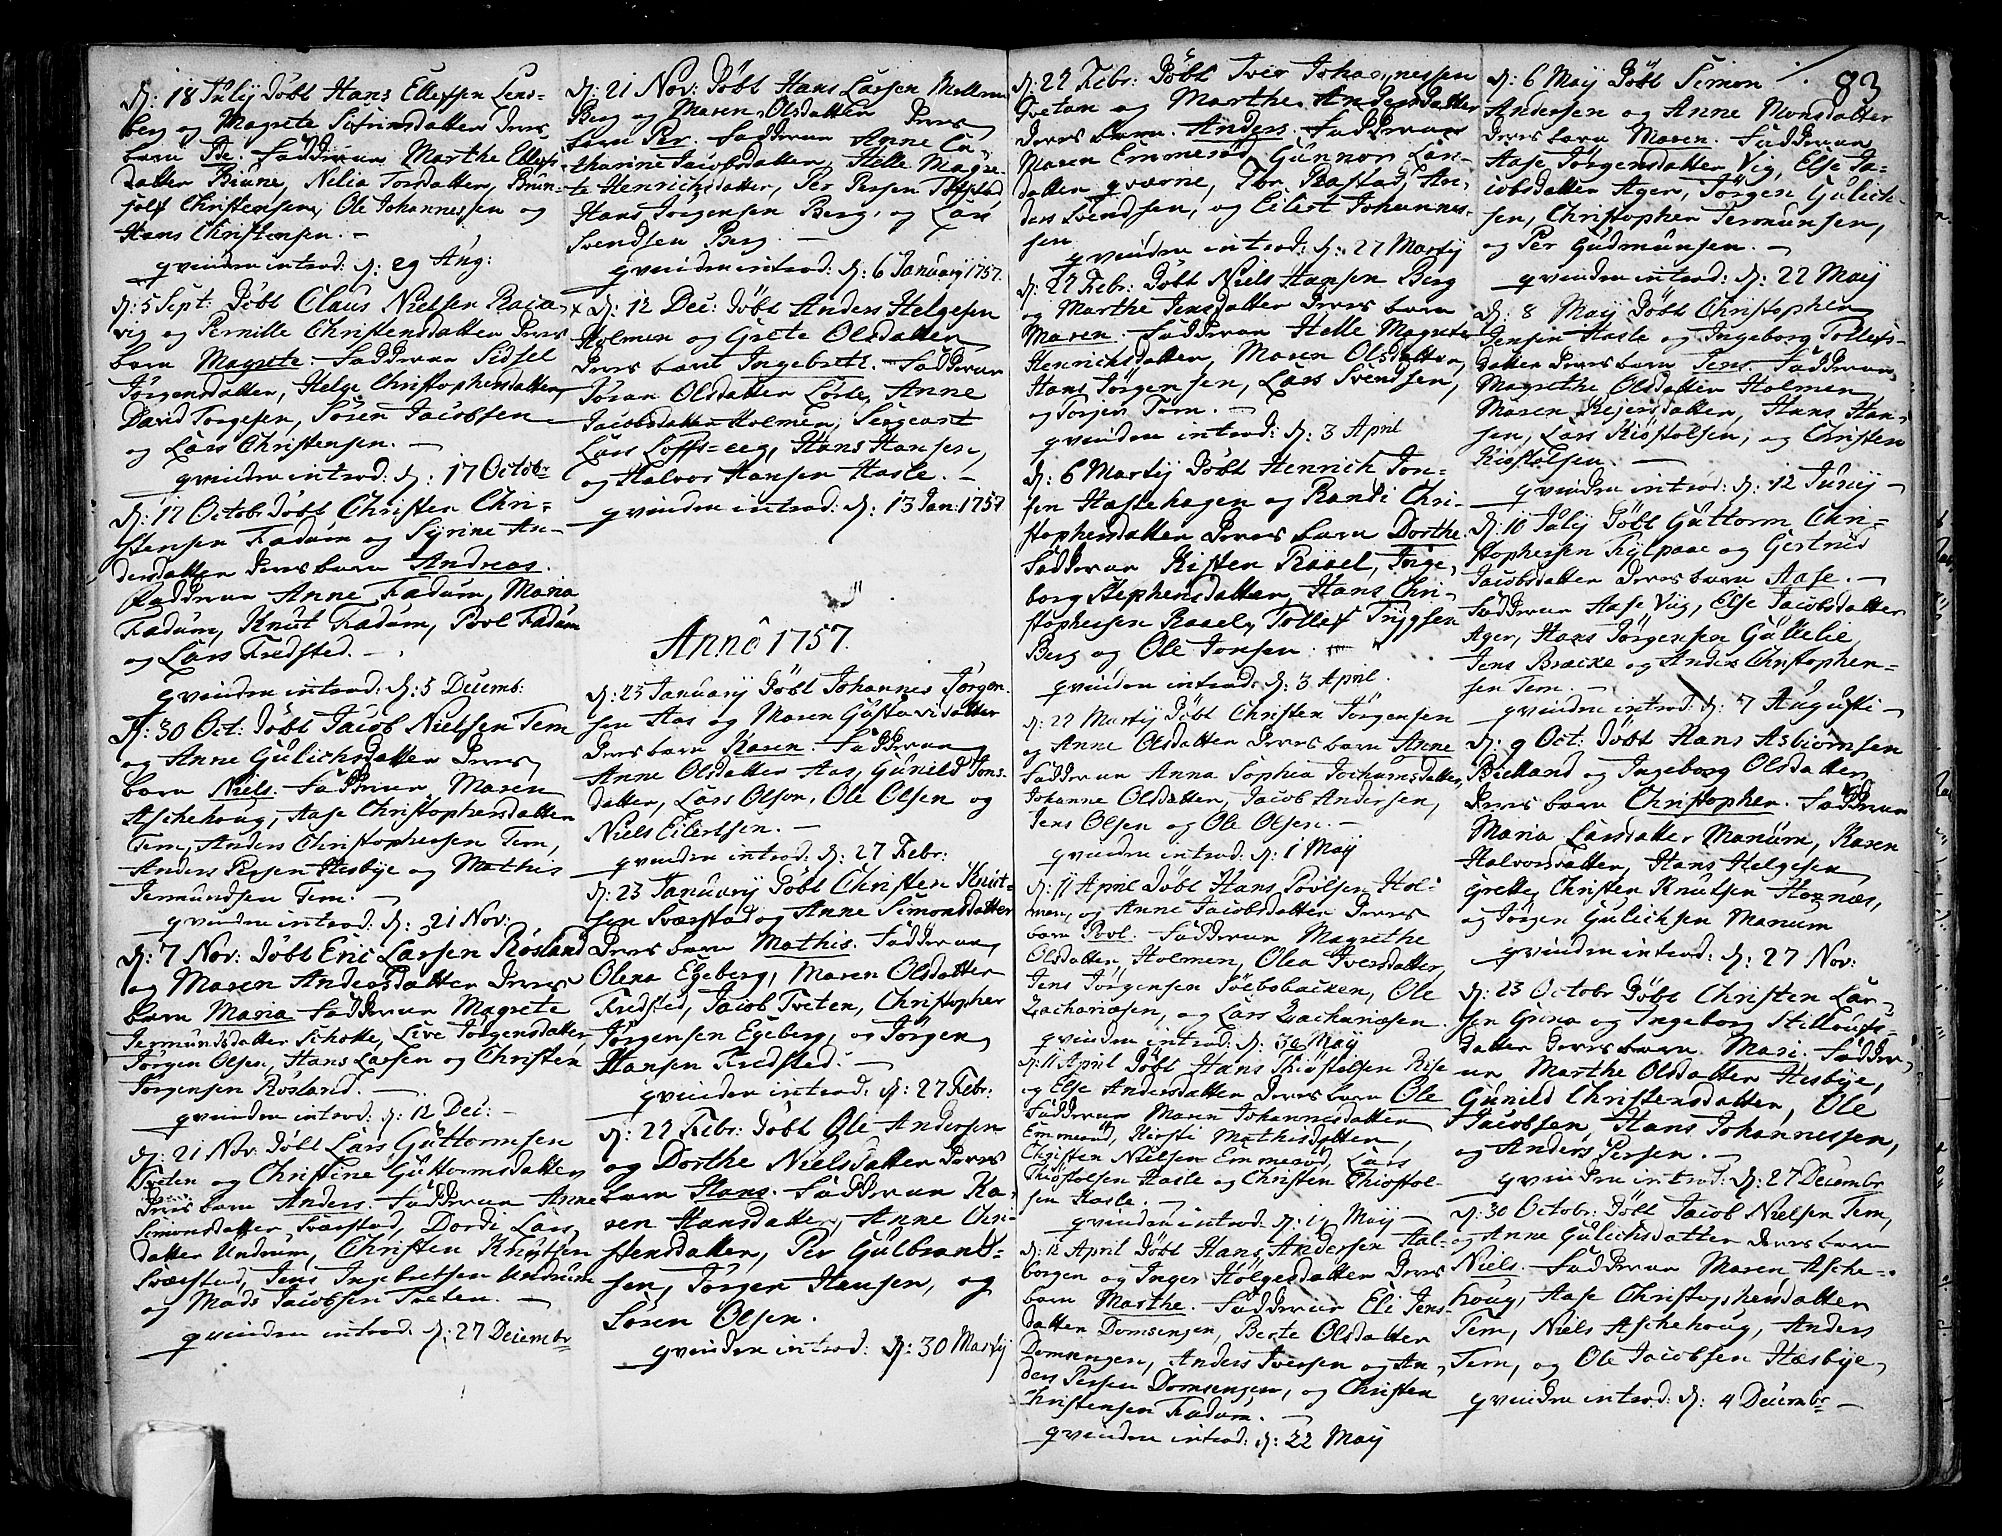 d: 18 July Döbt Hans Ellefsen Lens-
berg og Magrete Sörinsdatter Deres
barn Pe. Fadderne Marthe Ellefs
datter Biune, Nelia Torsdatter, Brun-
jolf Christensen, Ole Johannessen og
Hans Christensen. —
qvinden introd: d: 29 Aug:
d: 5 Sept: Döbt Claus Nielsen Raea-
vig og Pernille Christensdatter Deres
barn Magrete. Fadderne Sidsel
Jörgensdatter, Helge Christophersdatter,
David Torgesen, Sören Jacobsen
og Lars Christensen. —
qvinden introd: d: 17 Octobr
d: 17 Octob: Döbt Christen Chri-
stensen Fadum og Syrine An-
dersdatter Deres barn Andreas.
Fadderne Anne Fadum, Maria
Fadum, Knut Fadum, Povl Fadum
og Lars Fredsted. —
qvinden introd: d: 5 Decemb:
d: 30 Oct: Döbt Jacob Nielsen Tem
og Anne Gulichsdatter Deres
barn Niels. Fadderne Maren
Aschehoug, Aase Christophersdatter
Tem, Anders Christophersen Tem,
Anders Persen Hesbye og Mathis
Jermundsen Tem. —
qvinden introd: d: 21 Nov:
d: 7 Nov: Döbt Eric Larsen Rösland
og Maren Andersdatter Deres
barn Maria Fadderne Magrete
Jermundsdatter Schotte, Live Jörgensdatter
Jörgen Olsen, Hans Larsen og Christen
Jörgensen Rösland. —
qvinden introd: d: 12 Dec: —
d: 21 Nov: Döbt Lars Guttormsen
Tveten og Christine Guttormsdatter
Deres barn Anders. Fadderne Anne
Simonsdatter Svarstad, Dordi Lars
datter Undrum, Christen Knutsen
Sværstad, Jens Ingebretsen Undrum
og Mads Jacobsen Tveten. —
qvinden introd: d: 27 Decembr
d: 21 Nov: Döbt Hans Larsen Mellem
Berg og Maren Olsdatter Deres
barn Per. Fadderne Anne Ca-
tharine Jacobsdatter, Helle Magre-
te Henrichsdatter, Per Persen
Hans Jörgensen Berg, og Lars
Svendsen Berg. —
qvinden introd: d: 6 January 1757.
x d: 12 Dec: Döbt Anders Helgesen
Holmen og Grete Olsdatter
Deres barn Ingebret. Fadderne
Joran Olsdatter Lörte, Anne
Jacobsdatter Holmen, Sergeant
Lars Loffs=eeg, Hans Hansen,
og Halvor Hansen Hasle. —
qvinden introd: d: 13 Jan: 1757
Anno 1757.
d: 23 January Döbt Johannes Jörgen-
sen Aas og Maren Gustavsdatter
Deres barn Karen. Fadderne
Anne Olsdatter Aas, Gunild Jons-
datter, Lars Olsen, Ole Olsen og
Niels Eilertsen. —
qvinden introd: d: 27 Febr:
d: 23 January Döbt Christen Knut-
sen Sværstad og Anne Simonsdatter
Deres barn Mathis. Fadderne
Olena Egeberg, Maren Olsdatter
Fredsted, Jacob Tveten, Christopher
Jörgensen Egeberg, og Jörgen
Hansen Fredsted. —
qvinden introd: d: 27 Febr:
d: 22 Febr: Döbt Ole Andersen
og Dorthe Nielsdatter Deres
barn Hans. Fadderne Ka-
ren Hansdatter, Anne Chri-
stensdatter, Per Gulbrand-
sen, Jörgen Hansen, og
Sören Olsen.
qvinden introd: d: 30 Martij
d: 22 Febr: Döbt Iver Johannessen
Tvetan og Marthe Andersdatter
Deres barn. Anders. Fadderne
Maren Emmeröd, Gunnor Lars-
datter qværne, Tor Rastad, An-
ders Svendsen, og Eilert Johannes-
sen
qvinden introd: d: 27 Martij
d: 22 Febr: Döbt Niels Hansen Berg
og Marthe Jensdatter Deres barn
Maren. Fadderne Helle Magrete
Henrichsdatter, Maren Olsdatter,
Hans Jörgensen, Lars Svendsen,
og Jörgen Tem. —
qvinden introd: d: 3 April
d: 6 Martij Döbt Henrich Jon-
sen Hassehagen og Randi Chri-
stophersdatter Deres barn Dorthe.
Fadderne Kisten Raael, Inge-
borg Stephensdatter, Hans Chri-
stophersen Raael, Tollef Trygsen
Berg og Ole Jonsen.
qvinden introd: d: 3 April.
d: 22 Martij Döbt Christen Jörgensen
og Anne Olsdatter Deres barn Anne
Fadderne Anna Sophia Jochumsdatter,
Johanne Olsdatter, Jacob Andersen,
Jens Olsen og Ole Olsen. —
qvinden introd: d: 1 May
d: 11 April Döbt Hans Povlsen Hol-
men, og Anne Jacobsdatter Deres
barn Povl. Fadderne Magrethe
Olsdatter Holmen, Olea Iversdatter,
Jens Jörgensen Söebsbacken, Ole
Zachariæsen, og Lars Zachariæsen.
qvinden introd: d: 30 May
d: 11 April Döbt Hans Thiöstolsen Rise
og Else Andersdatter Deres barn Ole
Fadderne Maren Johannesdatter
Emmeröd, Kirsti Mathisdatter,
Christen Nielsen Emmeröd, Lars
Thiostolsen Hasle og Christen Thiostol-
sen Hasle. —
qvinden introd: d: 19 May —
d: 11 April Döbt Hans Andersen Aal-
borgen og Inger Hölgesdatter Deres
barn Marthe. Fadderne Eli Jens-
datter Domsengen, Berte Olsdatter
Domsengen, Anders Iversen og An-
ders Persen Domsengen, og Christen
Christensen Fadum. —
qvinden introd: d: 22 May
83
d: 6 May Döbt Simon
Andersen og Anne Monsdatter
Deres barn Maren. Fadderne
Aase Jörgensdatter Vig, Else Ja-
cobsdatter Ager, Jörgen Gulich-
sen, Christopher Jermunsen,
og Per Gudmunsen. —
qvinden introd: d: 22 May
d: 8 May Döbt Christopher
Jensen Hasle og Ingeborg Tollefs-
datter Deres barn Jens. Fadderne
Magrethe Olsdatter Holmen
Maren Rejersdatter, Hans Han-
sen, Lars Kiostolsen, og Christen
Kiostolsen. —
qvinden introd: d: 12 Junij —
d: 10 July Döbt Guttorm Chri-
stophersen Fylpaae og Gertrud
Jacobsdatter Deres barn Aase. —
Fadderne Aase Viig, Else Jacobsdatter
Ager, Hans Jörgensen Gullelie,
Jens Bracke og Anders Christophen-
sen Tem. —
qvinden introd: d: 7 Augusti —
d: 9 Oct: Döbt Hans Asbiörnsen
Bielland og Ingeborg Olsdatter
Deres barn Christopher. Fadderne
Maria Larsdatter Manum, Karen
Halvorsdatter, Hans Helgesen
Grette, Christen Knutsen Hornæs,
og Jörgen Gulichsen Manum
qvinden introd: d: 27 Nov:
d: 23 Octobr Döbt Christen Lar-
sen Grina og Ingeborg Stilloufs-
datter Deres barn. Mari. Fadder-
ne Marthe Olsdatter Hesbye,
Gunild Christensdatter, Ole
Jacobsen, Hans Johannessen,
og Anders Persen. —
qvinden introd: d: 27 Decembr
d: 30 Octobr: Döbt Jacob Nielsen Tem,
og Anne Gulichsdatter Deres barn
Niels. Fadderne Maren Asche-
houg, Aase Christophersdatter
Tem, Niels Aschehoug, Anders
Tem, og Ole Jacobsen Hæsbye,
qvinden introd: d: 4 Decembr —